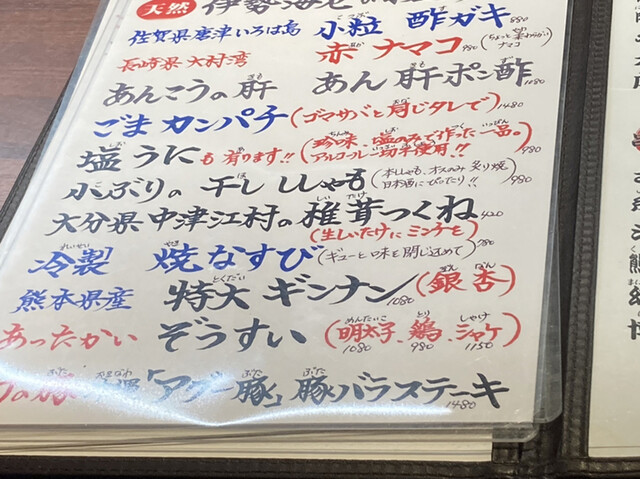 天然 伊勢海老
佐賀県唐津いろは島 小粒 酢ガキ 880
長崎県大村湾 赤ナマコ 980 (ちょっと変わらない ナマコ)
あんこうの肝 あん肝ポン酢 1180
ごまカンパチ (ゴマサバと同じタレで) 1480
塩うにも有ります!! (珍味、塩のみで作った一品。アルコール一切未使用!!) 980
小ぶりの干しししゃも (本ししゃも、オスのみ 炙り焼 日本酒にぴったり!!) 980
大分県中津江村の椎茸つくね 420
(生しいたけにミンチを)
冷製 焼なすび (ギューと味を閉じ込めて) 780
熊本県産 特大 ギンナン 1080 (銀杏)
あったかい ぞうすい (明太子 1080、鶏 980、シャケ 1150)
の豚 「アグー豚」豚バラステーキ 1480